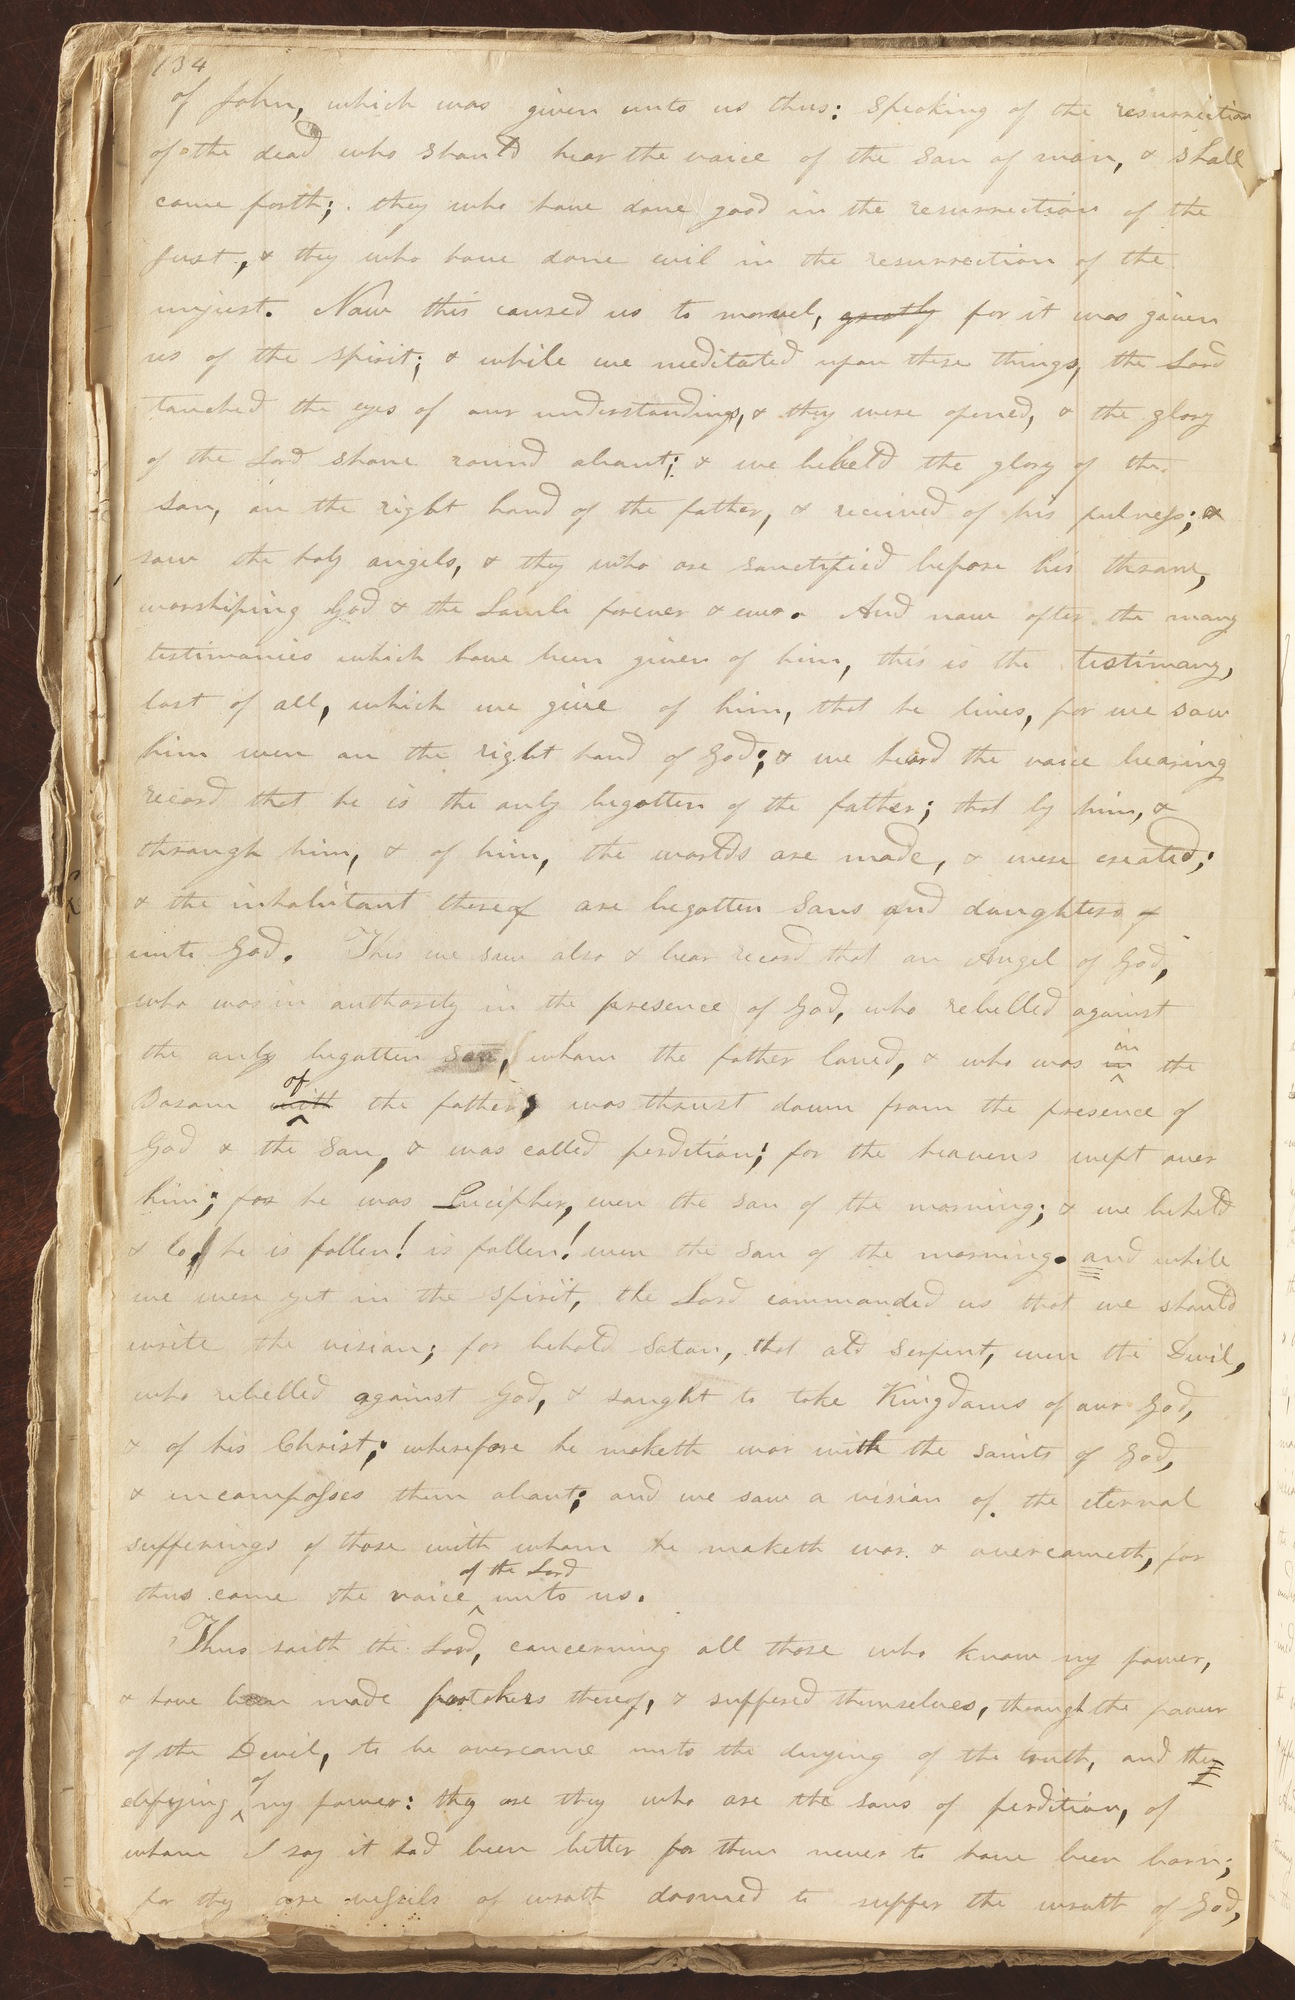 134
of John, which was given unto us thus: speaking of the resurrection
of the dead who should hear the voice of the son of man, & shall
come forth; they who have done good in the resurrection of the
just, & they who have done evil in the resurrection of the
unjust. Now this caused us to marvel, greatly for it was given
us of the spirit; & while we meditated upon these things, the Lord
touched the eyes of our understandings, & they were opened, & the glory
of the Lord shone round about; & we beheld the glory of the
son, on the right hand of the father, & received of his fulness; &
saw the holy angels, & they who are sanctified before his throne,
worshiping God & the Lamb forever & ever. And now after the many
testimonies which have been given of him, this is the testimony,
last of all, which we give of him, that he lives, for we saw
him even on the right hand of God; & we heard the voice bearing
record that he is the only begotten of the father; that by him, &
through him, & of him, the worlds are made, & were created;
& the inhabitant thereof are begotten sons and daughters
unto God. This we saw also & bear record that an Angel of God,
who was in authority in the presence of God, who rebelled against
the only begotten son, whom the father loved, & who was in
in the
Bosom with of the father, was thrust down from the presence of
God & the Son, & was called perdition; for the heavens wept over
him; for he was Lucipher, even the son of the morning; & we beheld
& lo he is fallen! is fallen! even the son of the morning. and while
we were yet in the spirit, the Lord commanded us that we should
write the vision; for behold satan, that old serpent, even the Devil,
who rebelled against God, & sought to take Kingdoms of our God,
& of his Christ; wherefore he maketh war with the saints of God,
& encompasses them about; and we saw a vision of the eternal
sufferings of those with whom he maketh war & overcometh, for
thus came the voice of the Lord unto us.
Thus saith the Lord, concerning all those who know my power,
& have been made partakers thereof, & suffered themselves, through the power
of the Devil, to be overcome unto the denying of the truth, and the
defying of my power: they are they who are the sons of perdition, of
whom I say it had been better for them never to have been born;
for they are vessels of wrath doomed to suffer the wrath of God,